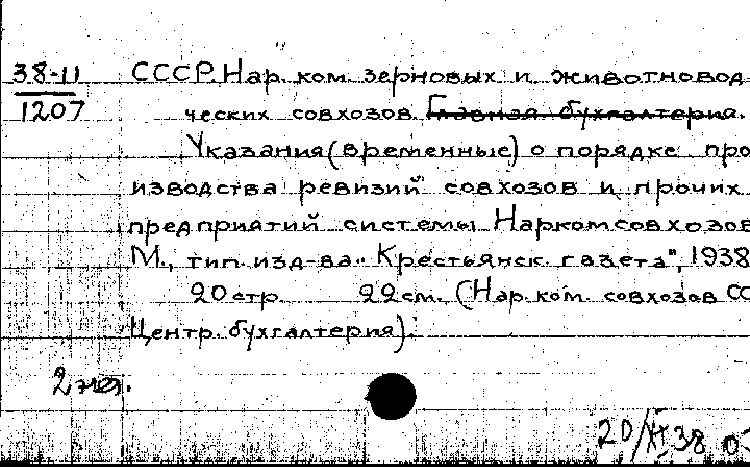 38-11
1207
СССР. Нар. ком. зерновых и животновод
ческих совхозов. Главная бухгалтерия.
Указания (временные) о порядке про
изводства ревизий совхозов и прочих
предприятий системы Наркомсовхозов
М., тип. изд-ва „Крестьянск. газета", 1938
20 стр. 22 см. (Нар. ком. совхозов СС
Центр. бухгалтерия).
2 экз.
20/XI 38